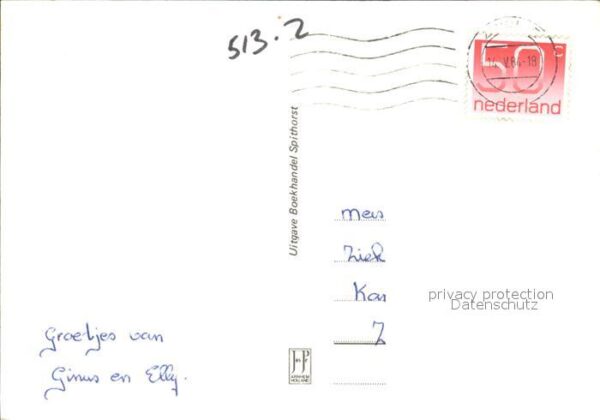 513.2
50 c
nederland
V.84-18
Uitgave Boekhandel Spithorst
Mevr
Ziek
Kar
7
privacy protection
Datenschutz
Groetjes van
Ginus en Elly.
JosPé
ARNHEM
HOLLAND